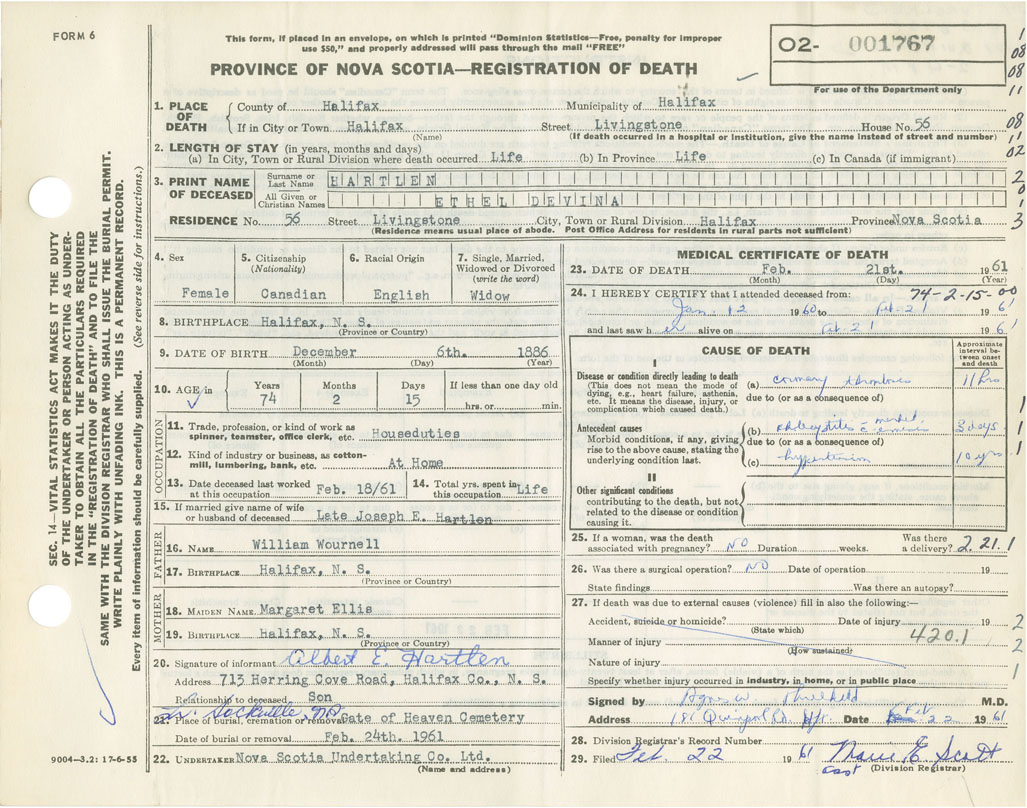 FORM 6
This form, if placed in an envelope, on which is printed "Dominion Statistics—Free, penalty for improper
use $50," and properly addressed will pass through the mail "FREE"
O2- 001767
PROVINCE OF NOVA SCOTIA—REGISTRATION OF DEATH
For use of the Department only
1. PLACE OF DEATH County of Halifax Municipality of Halifax
If in City or Town Halifax Street Livingstone House No. 56
(Name) (If death occurred in a hospital or institution, give the name instead of street and number)
2. LENGTH OF STAY (in years, months and days)
(a) In City, Town or Rural Division where death occurred Life (b) In Province Life (c) In Canada (if immigrant)
3. PRINT NAME OF DECEASED Surname or Last Name HARTLEN
All Given or Christian Names ETHEL DEVINA
RESIDENCE No. 56 Street Livingstone City, Town or Rural Division Halifax Province Nova Scotia
(Residence means usual place of abode. Post Office Address for residents in rural parts not sufficient)
4. Sex Female
5. Citizenship (Nationality) Canadian
6. Racial Origin English
7. Single, Married, Widowed or Divorced (write the word) Widow
8. BIRTHPLACE Halifax, N. S.
(Province or Country)
9. DATE OF BIRTH December 6th. 1886
(Month) (Day) (Year)
10. AGE in Years 74 Months 2 Days 15 If less than one day old hrs. or min.
OCCUPATION
11. Trade, profession or kind of work as spinner, teamster, office clerk, etc. Houseduties
12. Kind of industry or business, as cotton-mill, lumbering, bank, etc. At Home
13. Date deceased last worked at this occupation Feb. 18/61
14. Total yrs. spent in this occupation Life
15. If married give name of wife or husband of deceased Late Joseph E. Hartlen
FATHER
16. NAME William Wournell
17. BIRTHPLACE Halifax, N. S.
(Province or Country)
MOTHER
18. MAIDEN NAME Margaret Ellis
19. BIRTHPLACE Halifax, N. S.
(Province or Country)
20. Signature of informant Albert E. Hartlen
Address 713 Herring Cove Road, Halifax Co., N. S.
Relationship to deceased Son
Sackville, NS
21. Place of burial, cremation or removal Gate of Heaven Cemetery
Date of burial or removal Feb. 24th. 1961
22. UNDERTAKER Nova Scotia Undertaking Co. Ltd.
(Name and address)
MEDICAL CERTIFICATE OF DEATH
23. DATE OF DEATH Feb. 21st. 1961
(Month) (Day) (Year)
24. I HEREBY CERTIFY that I attended deceased from: 74-2-15-00
Jan. 12 1960 to Feb-21 196
and last saw her alive on Feb-21 196
CAUSE OF DEATH
Approximate interval between onset and death
I
Disease or condition directly leading to death
(This does not mean the mode of dying, e.g., heart failure, asthenia, etc. It means the disease, injury, or complication which caused death.)
(a) coronary thrombosis 11 hrs
due to (or as a consequence of)
Antecedent causes
Morbid conditions, if any, giving rise to the above cause, stating the underlying condition last.
(b) 3 days
due to (or as a consequence of)
(c) hypertension 10 yrs
II
Other significant conditions
contributing to the death, but not related to the disease or condition causing it.
25. If a woman, was the death associated with pregnancy? NO Duration weeks. Was there a delivery? 2.21.1
26. Was there a surgical operation? NO Date of operation 19
State findings Was there an autopsy?
27. If death was due to external causes (violence) fill in also the following:—
Accident, suicide or homicide? Date of injury 19
(State which)
Manner of injury 420.1
(How sustained)
Nature of injury
Specify whether injury occurred in industry, in home, or in public place
Signed by Agnes W. M.D.
Address 181 Quinpool Rd. Hfx. Date Feb 22 1961
28. Division Registrar's Record Number
29. Filed Feb. 22 1961 E. Scott
(Division Registrar)
SEC. 14—VITAL STATISTICS ACT MAKES IT THE DUTY
OF THE UNDERTAKER OR PERSON ACTING AS UNDER-
TAKER TO OBTAIN ALL THE PARTICULARS REQUIRED
IN THE "REGISTRATION OF DEATH" AND TO FILE THE
SAME WITH THE DIVISION REGISTRAR WHO SHALL ISSUE THE BURIAL PERMIT.
WRITE PLAINLY WITH UNFADING INK. THIS IS A PERMANENT RECORD.
Every item of information should be carefully supplied. (See reverse side for instructions.)
9004—3.2: 17-6-55
1
08
08
11
08
11
02
2
0
3
1
1
1
2
2
1